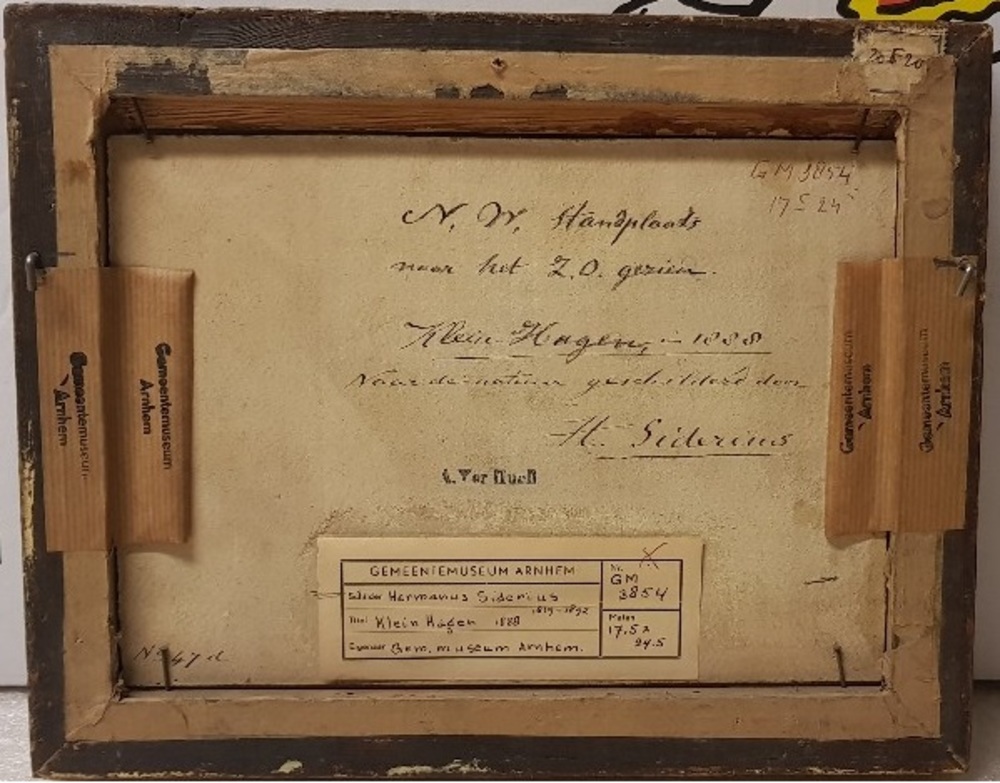 GM 3854
N. W. Standplaats
naar het Z.O. gezien.
Klein Hagen, in 1888
Naar de natuur geschilderd door
H. Siderius
Gemeentemuseum
Arnhem
Gemeentemuseum
Arnhem
Gemeentemuseum
Arnhem
Gemeentemuseum
Arnhem
GEMEENTEMUSEUM ARNHEM
Schilder Hermanus Siderius
1819-1892
Titel Klein Hagen 1888
Eigenaar Gem. museum Arnhem.
Nr.
GM
3854
Maten
17.5 x
24.5
No 47 d